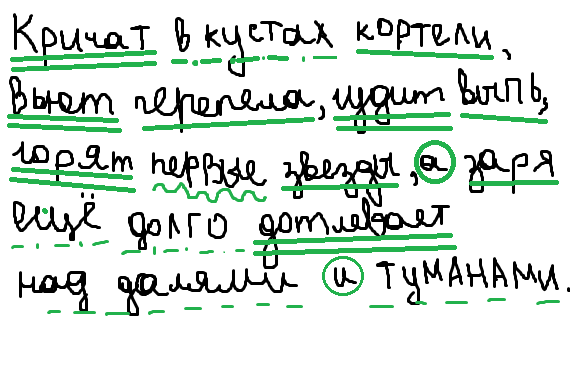 Кричат в кустах кортели,
вьют перепела, удит выпь,
горят первые звезды, а заря
ещё долго дотлевает
над далями и туманами.